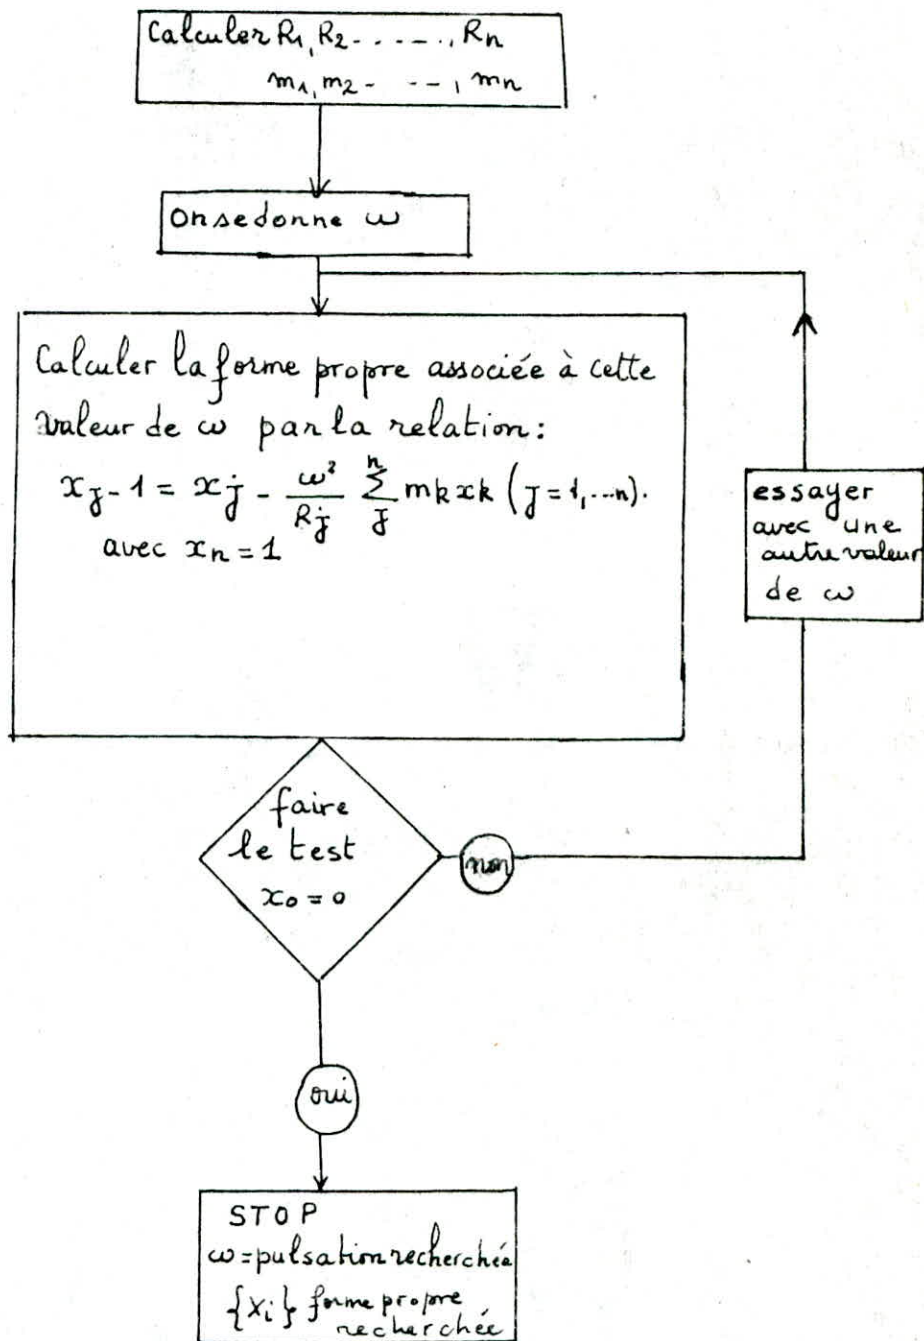 Calculer R1, R2 - . - . - -, Rn
m1, m2 - - - -, mn
On se donne ω
Calculer la forme propre associée à cette
valeur de ω par la relation:
xj-1 = xj - ω²/Rj ∑ⁿj mk xk (j = 1, ...n).
avec xn = 1
essayer
avec une
autre valeur
de ω
faire
le test
x0 = 0
non
oui
STOP
ω = pulsation recherchée
{Xi} forme propre
recherchée